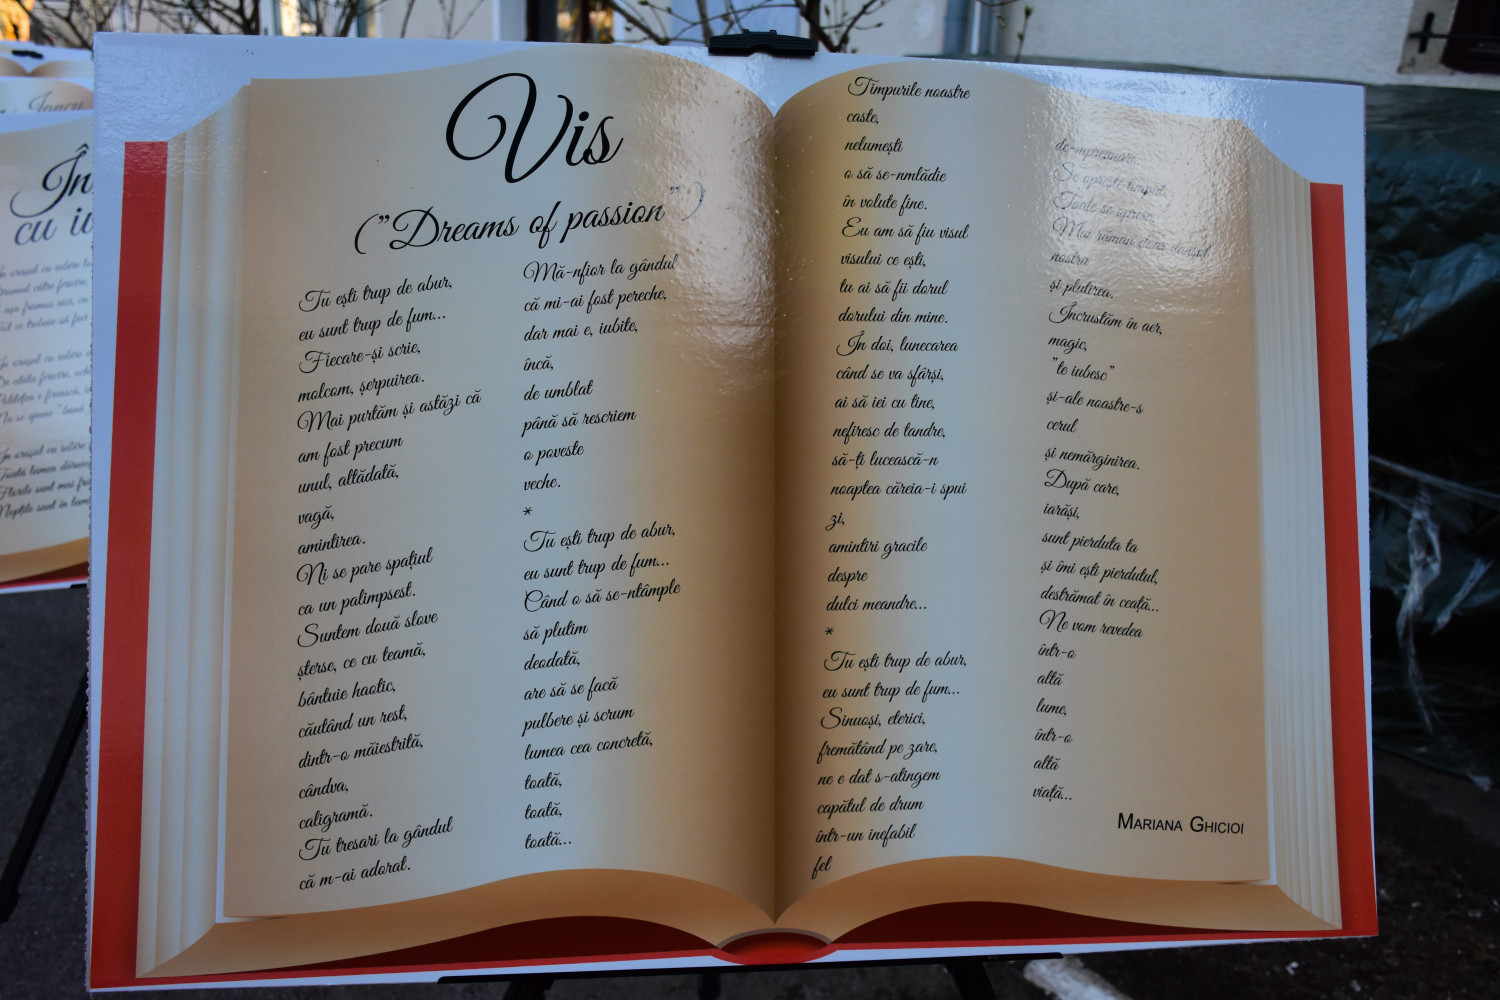 Vis
("Dreams of passion")
Tu ești trup de abur,
eu sunt trup de fum...
Fiecare-și scrie,
molcom, șerpuirea.
Mai purtăm și astăzi că
am fost precum
unul, altădată,
vagă,
amintirea.
Ni se pare spațiul
ca un palimpsest.
Suntem două slove
șterse, ce cu teamă,
bântuie haotic,
căutând un rest,
dintr-o măiestrită,
cândva,
caligramă.
Tu tresari la gândul
că m-ai adorat.
Mă-nfior la gândul
că mi-ai fost pereche,
dar mai e, iubite,
încă,
de umblat
până să rescriem
o poveste
veche.
*
Tu ești trup de abur,
eu sunt trup de fum...
Când o să se-ntâmple
să plutim
deodată,
are să se facă
pulbere și scrum
lumea cea concretă,
toată,
toată,
toată...
Timpurile noastre
caste,
nelumești
o să se-nmlădie
în volute fine.
Eu am să fiu visul
visului ce ești,
tu ai să fii dorul
dorului din mine.
În doi, lunecarea
când se va sfârși,
ai să iei cu tine,
nefiresc de tandre,
să-ți lucească-n
noaptea căreia-i spui
zi,
amintiri gracile
despre
dulci meandre...
*
Tu ești trup de abur,
eu sunt trup de fum...
Sinuoși, eterici,
fremătând pe zare,
ne e dat s-atingem
capătul de drum
într-un inefabil
fel
de-mpreunare.
Se oprește timpul.
Toate se opresc.
Mai rămân doar dansul
nostru
și plutirea.
Încrustăm în aer,
magic,
"te iubesc"
și-ale noastre-s
cerul
și nemărginirea.
După care,
iarăși,
sunt pierduta ta
și îmi ești pierdutul,
destrămat în ceață...
Ne vom revedea
într-o
altă
lume,
într-o
altă
viață...
Mariana Ghicioi